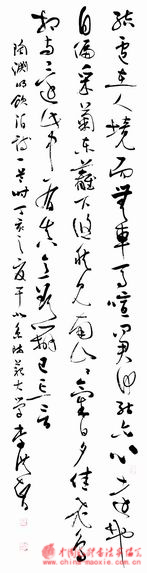 結廬在人境而無車馬喧問君何能爾心遠地
自偏采菊東籬下悠然見南山山氣日夕佳飛鳥
相與還此中有真意欲辨已忘言
陶淵明飲酒詩一首時丁亥之夏于北京師範大學李洪智
www.maoxie.com